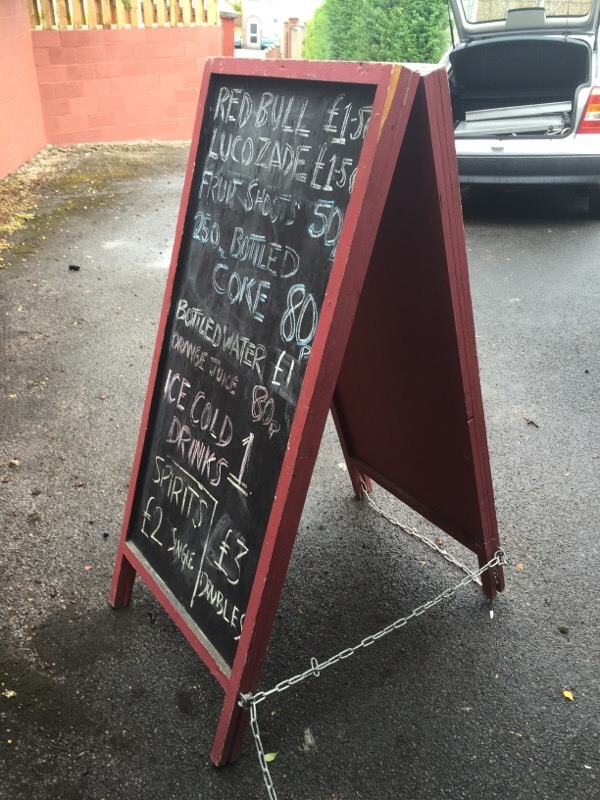 RED BULL £1·50
LUCOZADE £1·50
FRUIT SHOOTS 50P
250ML BOTTLED
COKE 80P
BOTTLED WATER £1
ORANGE JUICE 80P
ICE COLD
DRINKS £1
SPIRITS
£2 SINGLE £3 DOUBLES